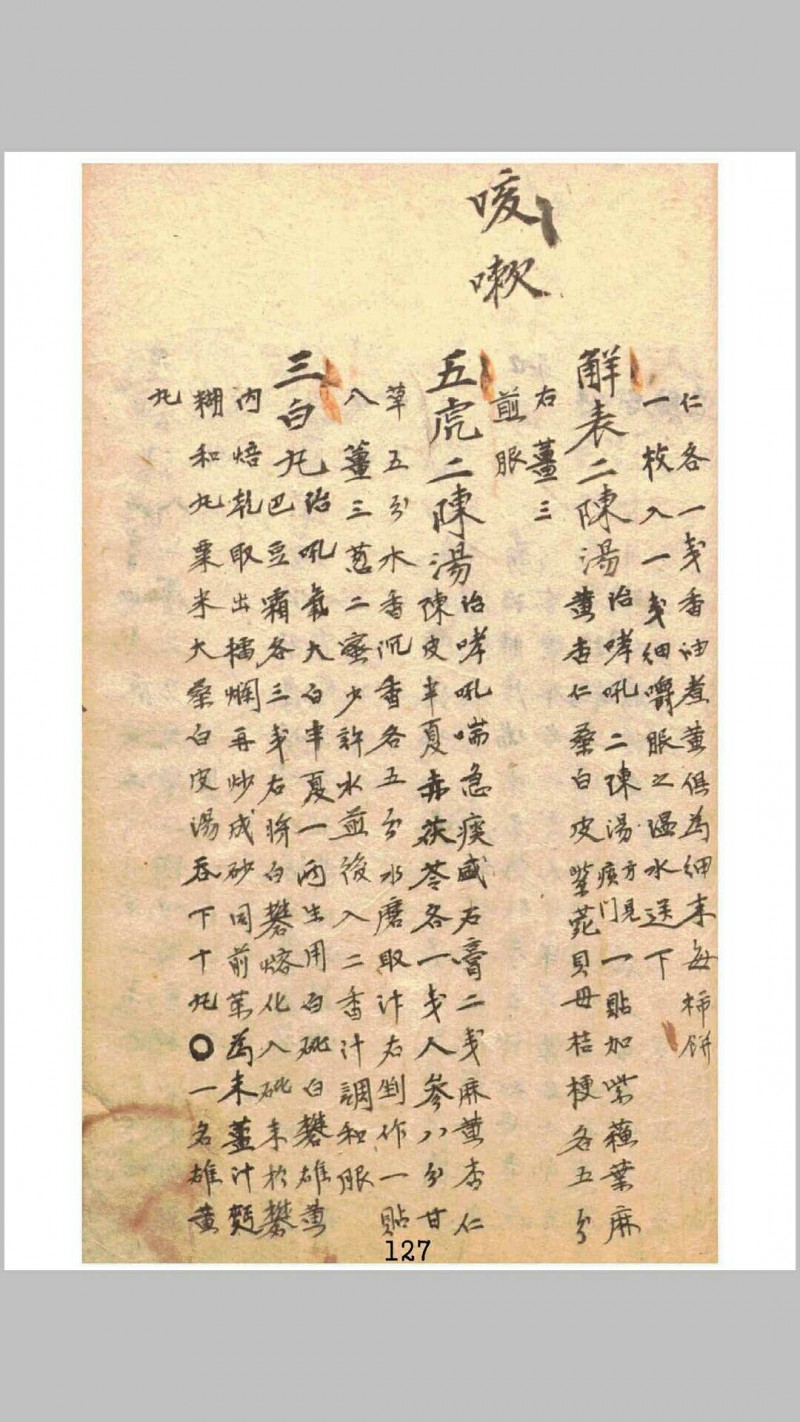 咳嗽
仁各一戔香油煮黃俱為細末每柿餅
一枚入一戔細嚼服之溫水送下
解表二陳湯治哮吼二陳湯方見痰門一貼加紫蘓葉麻
黃杏仁桑白皮紫菀貝母桔梗各五分
右薑三
煎服
五虎二陳湯治哮吼喘急痰盛石膏二戔麻黃杏仁
陳皮半夏赤茯苓各一戔人參八分甘
草五分木香沉香各五分水磨取汁右剉作一貼
入薑三葱二蜜少許水煎後入二香汁調和服
三白丸治吼氣大白半夏一兩生用白砒白礬雄黃
巴豆霜各三戔右將白礬熔化入砒末於礬
內焙乾取出擂爛再炒成砂同前藥為末薑汁麪
糊和丸粟米大桑白皮湯吞下十丸〇一名雄黃
丸
127